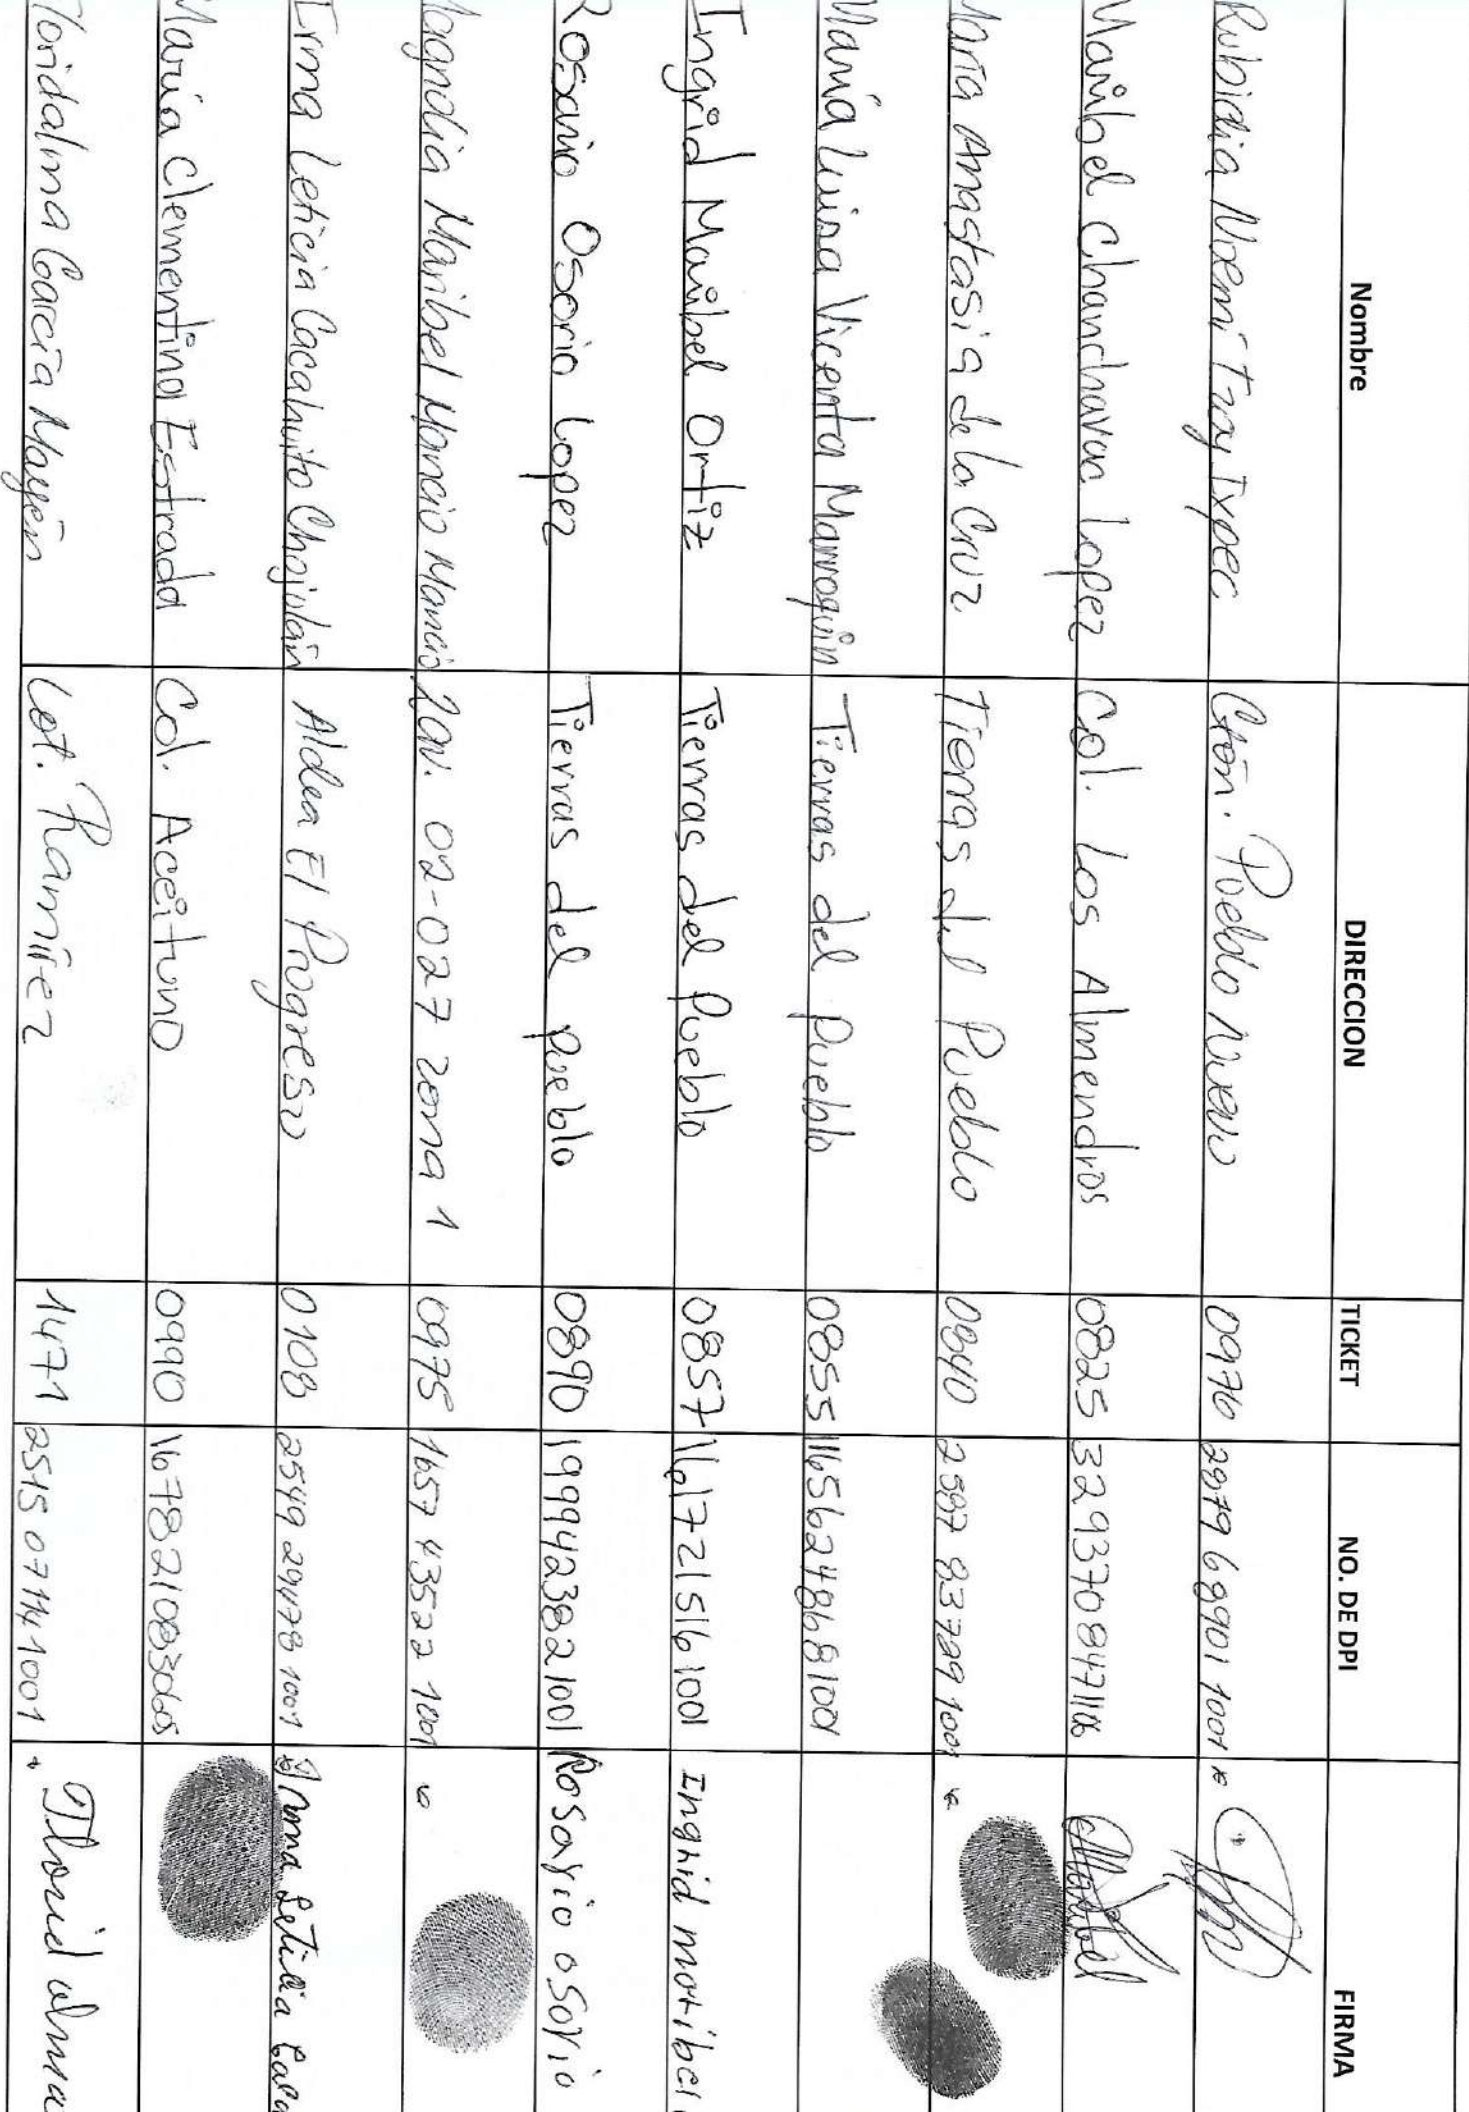 Nombre DIRECCION TICKET NO. DE DPI FIRMA
Rubidia Noemi Tzay Ixpec Ctón. Pueblo Nuevo 0970 2979 68901 1001
Maribel Chanchavac Lopez Col. Los Almendros 0825 3293708471106 Maribel
María Anastasia de la Cruz Tierras del Pueblo 0840 2587 83729 1001
María Luisa Vicenta Marroquin Tierras del pueblo 0855 1656248681001
Ingrid Maribel Ortiz Tierras del Pueblo 0857 1617215161001 Ingrid maribel
Rosario Osorio Lopez Tierras del pueblo 0890 1999423821001 Rosario osorio
Magnolia Maribel Mancio Mancio 2av. 02-027 zona 1 0975 1657 43522 1001
Irma Leticia Cacahuito Chojolán Aldea El Progreso 0108 2549 29478 1001 Irma Leticia Caca
María Clementina Estrada Col. Aceituno 0990
Floridalma García Mayén Lot. Ramírez 1471 2515 07114 1001 Florid alma